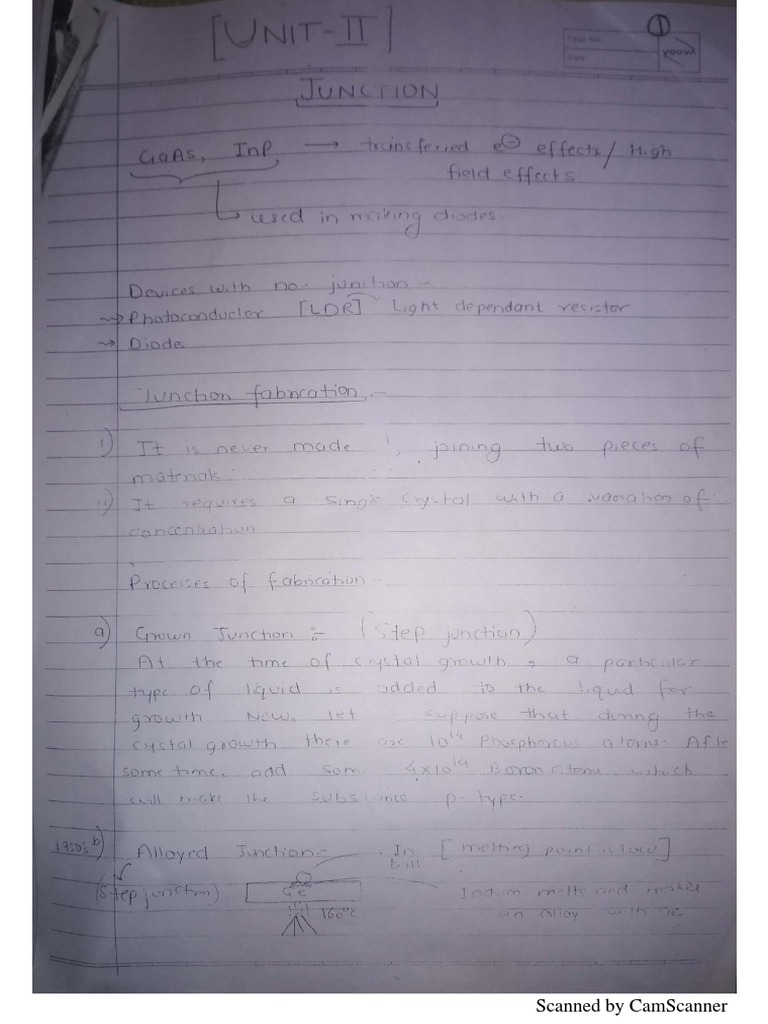 [UNIT-II]
①
Page No.:
Date:
youva
JUNCTION
GaAs, InP → transferred e⊖ effects/ High
field effects.
used in making diodes.
Devices with no junction -
⇝ Photoconductor [LDR] Light dependant resistor
⇝ Diodes
Junction fabrication :-
i) It is never made , joining two pieces of
matrials.
ii) It requires a single crystal with a variation of
concentration
Processes of fabrication
a) Grown Junction :- (Step junction)
At the time of crystal growth, a particular
type of liquid is added to the liquid for
growth Now, let suppose that during the
crystal growth there are 10¹⁴ Phosphorus atoms. After
some time, add som 4x10¹⁴ Boron atoms which
will make the substance p-type.
1950s b) Alloyed Junction:- In [melting point is low]
ball
(Step junction) Ge Indium melts and makes
160°C an alloy with Ge.
Scanned by CamScanner